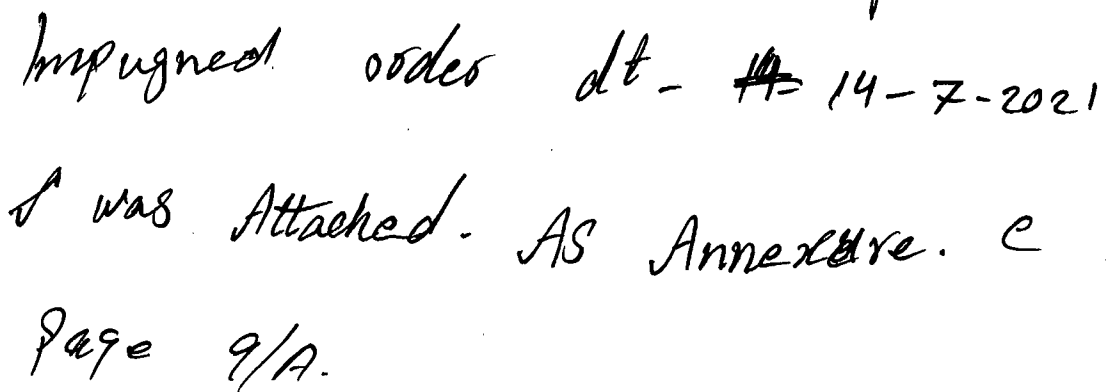 Impugned order dt- 14-7-2021
I was Attached. As Annexure. C
Page 9/A.